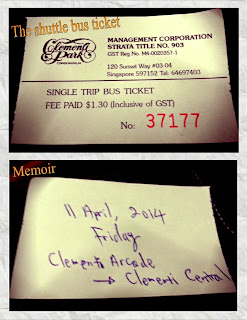 The shuttle bus ticket
Clementi Park
CONDOMINIUM
MANAGEMENT CORPORATION
STRATA TITLE NO. 903
GST Reg No. M4-0020357-1
120 Sunset Way #03-04
Singapore 597152 Tel: 64697403
SINGLE TRIP BUS TICKET
FEE PAID $1.30 (Inclusive of GST)
No: 37177
Memoir
11 April, 2014
Friday
Clementi Arcade
→ Clementi Central